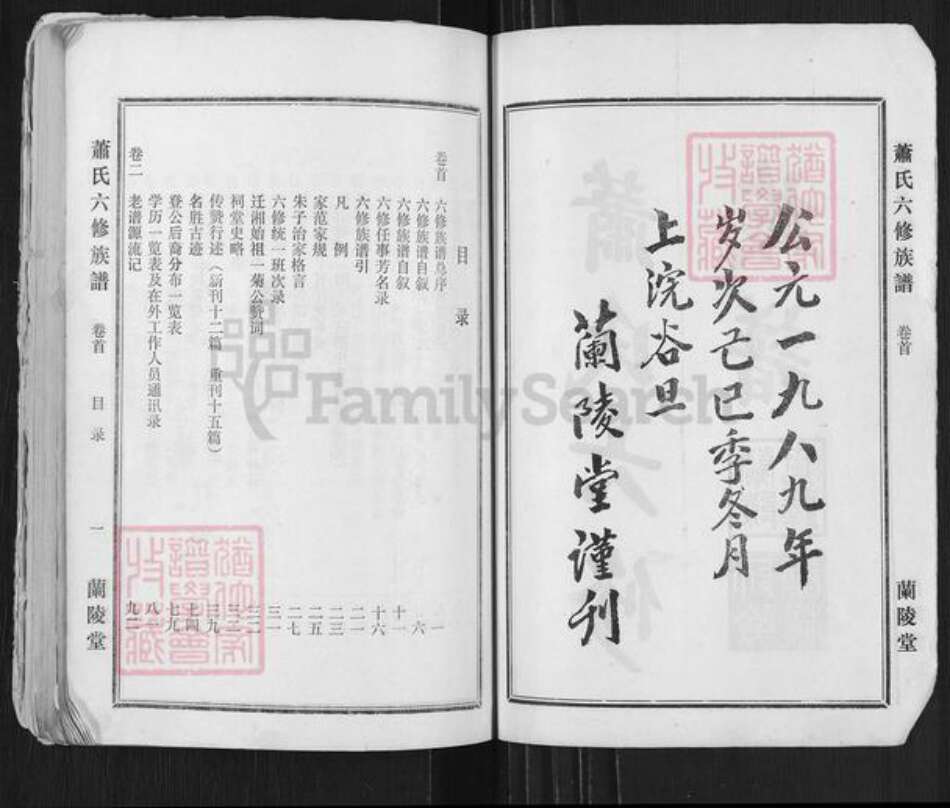 蕭氏六修族譜 卷首 蘭陵堂
公元一九八九年
岁次己巳季冬月
上浣谷旦
蘭陵堂谨刊
目录
卷首
六修族谱自叙 六
六修族谱自叙 十一
六修任事芳名录 十六
六修族谱引 二一
凡例 二三
家范家规 二五
朱子治家格言 二七
六修统一班次录 三一
迁湘始祖一菊公赞词
祠堂史略
传赞行述（新刊十二篇 重刊十五篇） 三九
名胜古迹 七四
登公后裔分布一览表 七九
学历一览表及在外工作人员通讯录 八一
卷二 老谱源流记 九二
蕭氏六修族譜 卷首 目录 一 蘭陵堂
FamilySearch